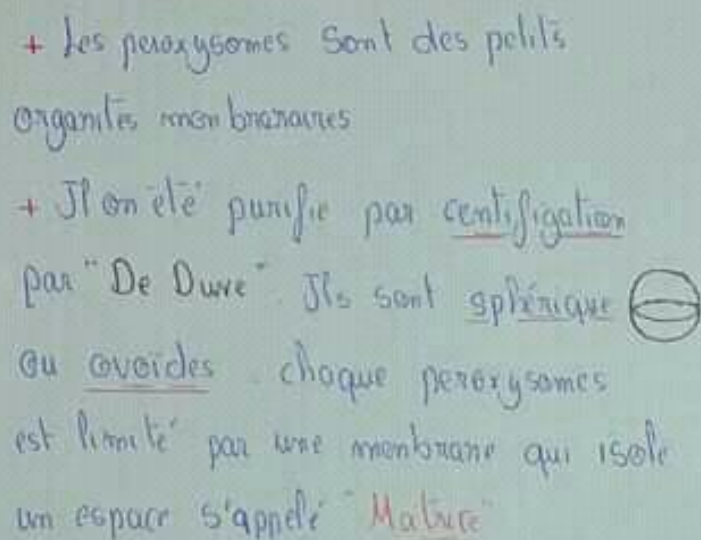 + Les peroxysomes sont des petits
organites membranaires
+ Il on été purifie par centifigation
par "De Duve". Ils sont sphérique
ou ovoïdes. chaque peroxysomes
est limité par une menbrane qui isole
un espace s'appelé "Matrice"